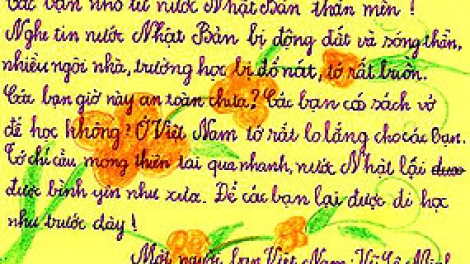 Các bạn nhỏ từ nước Nhật Bản thân mến !
Nghe tin nước Nhật Bản bị động đất và sóng thần,
nhiều ngôi nhà, trường học bị đổ nát, tớ rất buồn.
Các bạn giờ này an toàn chưa? Các bạn có sách vở
để học không? Ở Việt Nam tớ rất lo lắng cho các bạn.
Tớ chỉ cầu mong thiên tai qua nhanh, nước Nhật lại
được bình yên như xưa. Để các bạn lại được đi học
như trước đây !
Một người bạn Việt Nam: Vũ Lê Minh